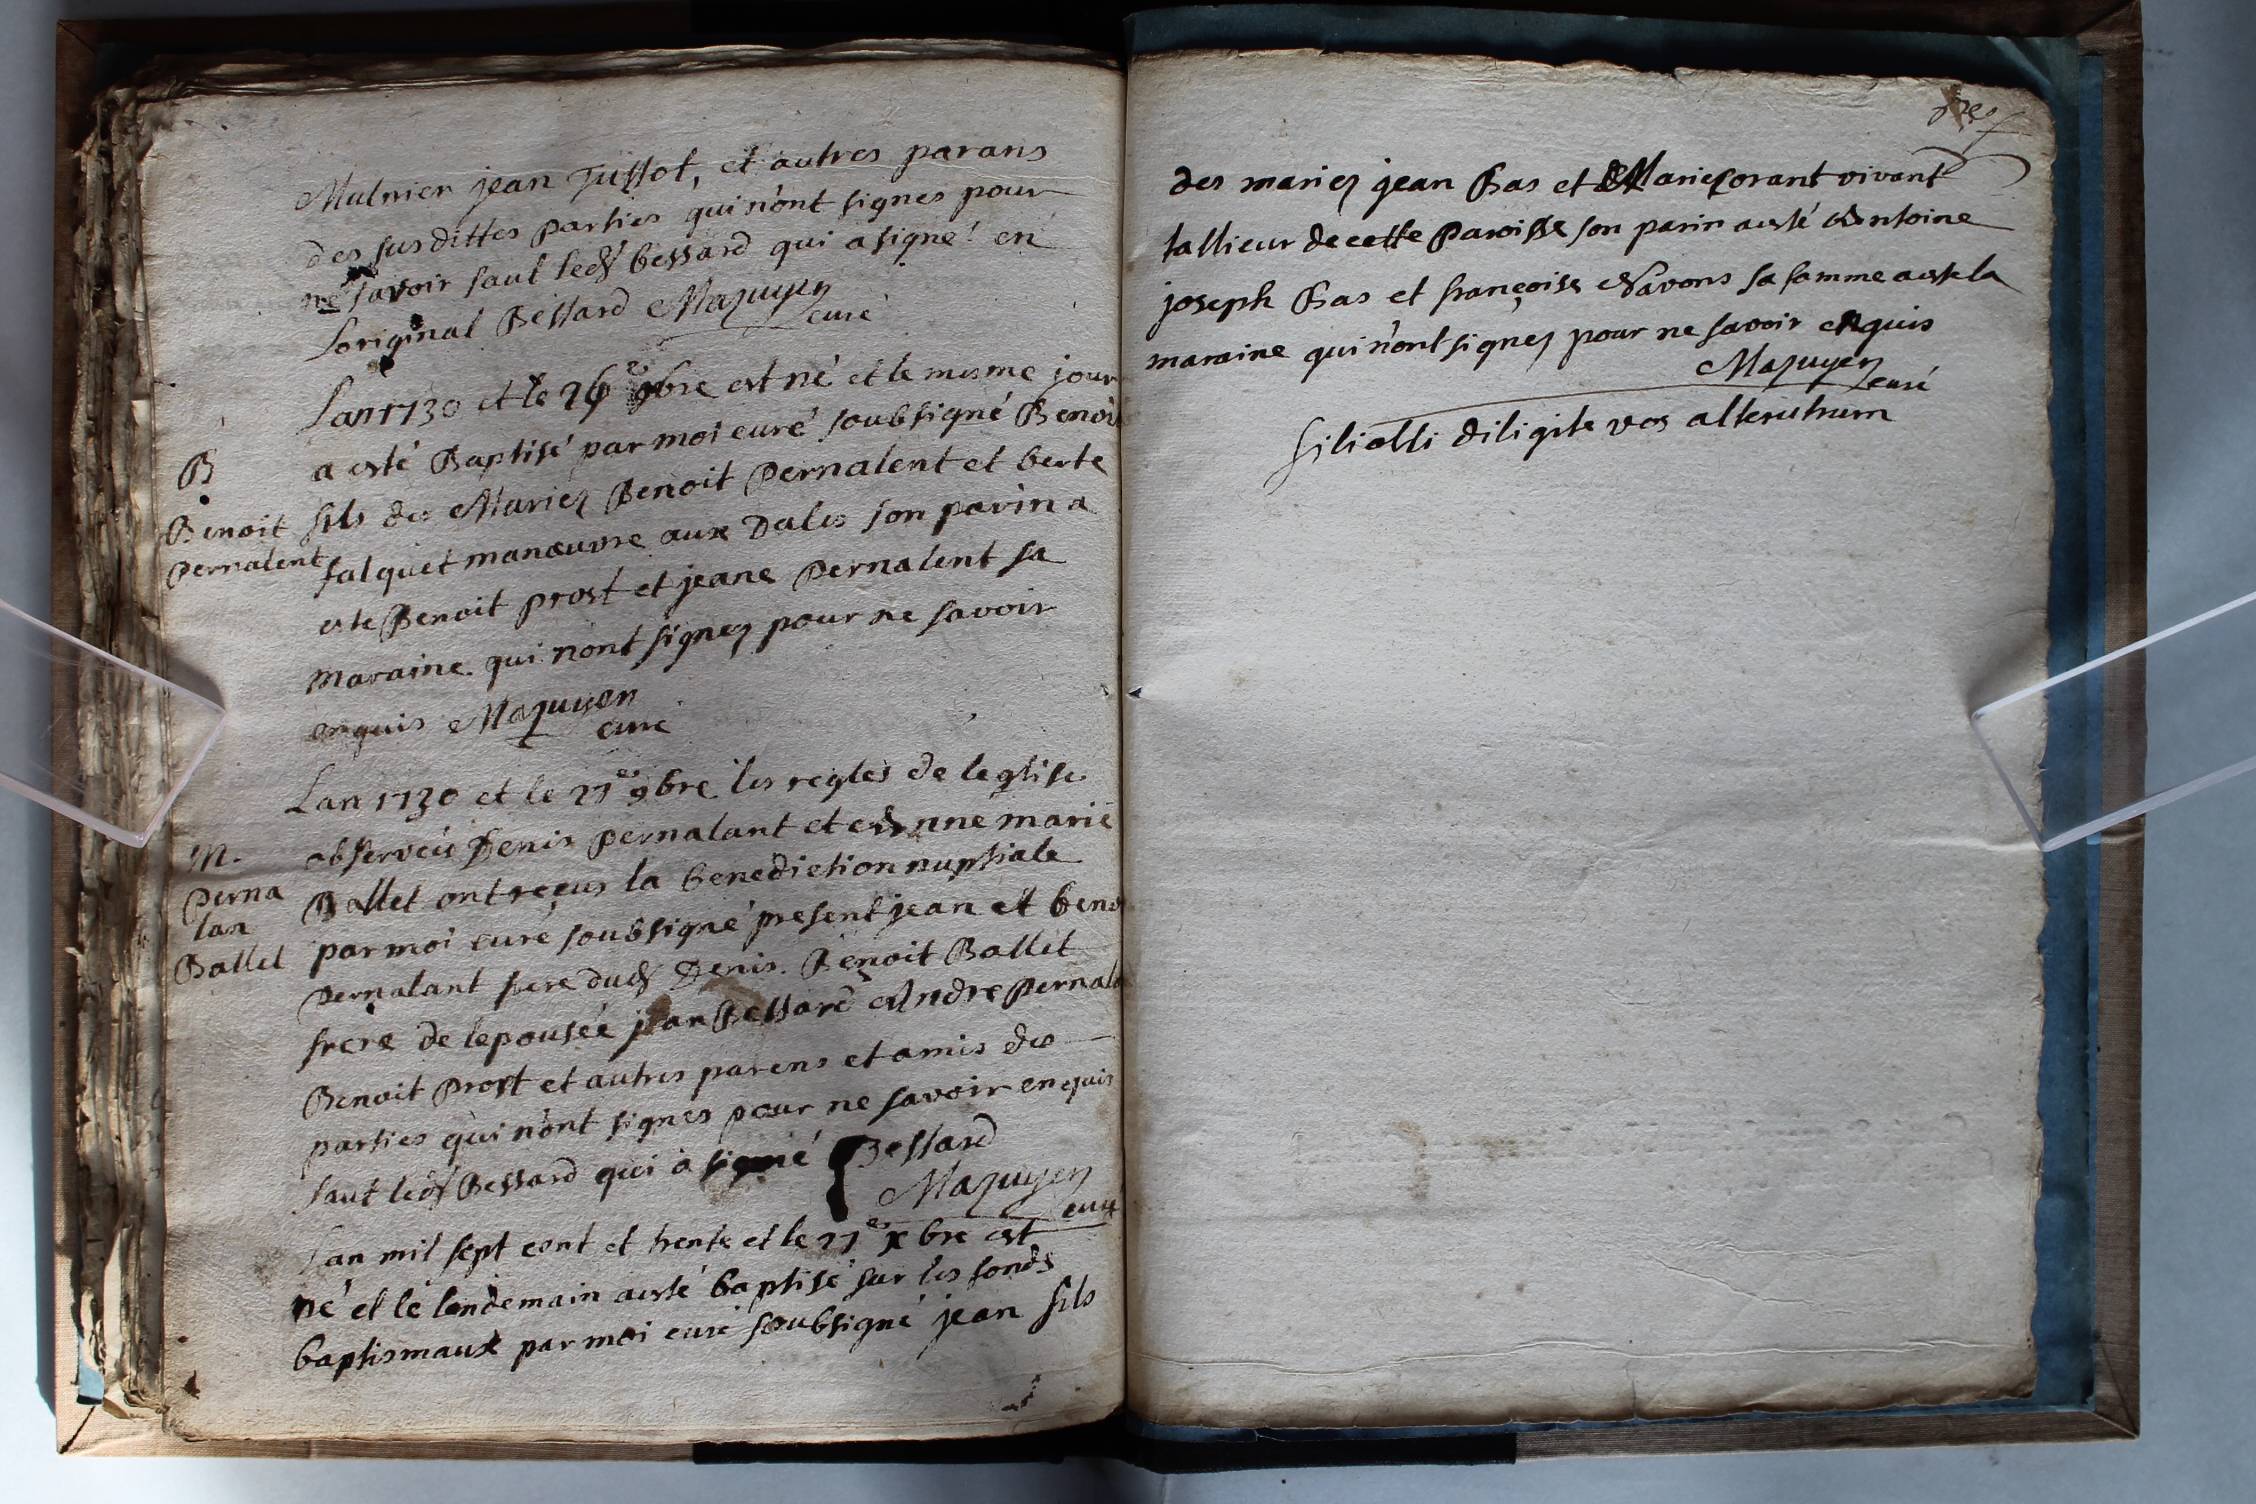 Mulnier jean Tussot, et autres parans
des susdittes parties qui n'ont signes pour
ne savoir sauf led bessard qui a signé en
loriginal Bessard Mazuyer
curé
Lan 1730 et le 26e 9bre est né et le mesme jour
a esté Baptisé par moi curé soubsigné Benoi
B
Benoit
Pernalent
fils des Mariez Benoit Pernalent et berte
falquet manœuvre aux Dales son parin a
este Benoit prost et jeane Pernalent sa
maraine qui n'ont signez pour ne savoir
enquis Mazuyer
curé
Lan 1730 et le 27e 9bre les regles de leglise
M.
Perna
lan
Ballet
observeés Denis Pernalant et Anne marie
Ballet ont reçeus la benediction nuptiale
par moi curé soubsigné present jean et beno
Pernalant frere dud Denis. Benoit Ballet
frere de lepousée jean Bessard Andre Pernala
Benoit Prost et autres parens et amis des
parties qui n'ont signes pour ne savoir enquis
sauf led Bessard qui a signé Bessard
Mazuyer
curé
Lan mil sept cent et trente et le 27e xbre est
né et le lendemain a esté baptisé sur les fonds
baptismaux par moi curé soubsigné jean fils
des mariez jean Bas et Marie Lorant vivant
tallieur de cette Paroisse son parin a esté Antoine
joseph Bas et françoise Navons sa famme a este la
maraine qui n'ont signez pour ne savoir enquis
Mazuyer
curé
filiolli diligite vos alterutrum